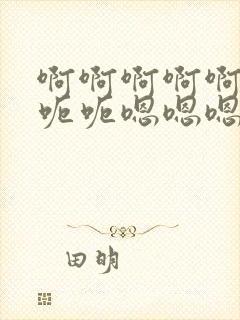 啊啊啊啊啊
呃呃嗯嗯嗯
田明